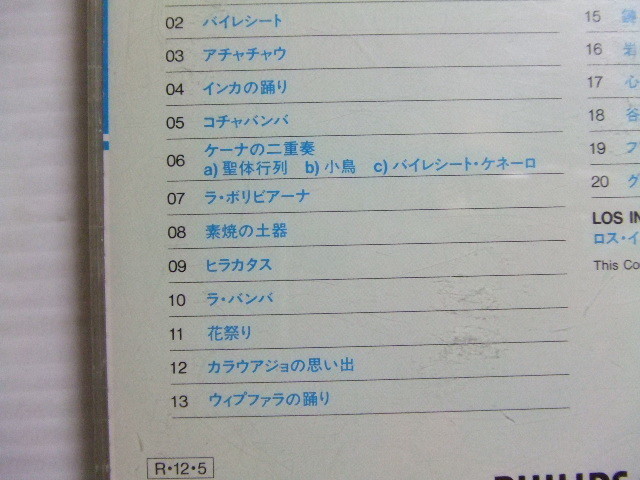 02 バイレシート
03 アチャチャウ
04 インカの踊り
05 コチャバンバ
06 ケーナの二重奏
a) 聖体行列 b) 小鳥 c) バイレシート・ケネーロ
07 ラ・ボリビアーナ
08 素焼の土器
09 ヒラカタス
10 ラ・バンバ
11 花祭り
12 カラウアジョの思い出
13 ウィプファラの踊り
R・12・5
15
16 岩
17 心
18 谷
19 フ
20 グ
LOS IN
ロス・イ
This Co
PHILIPS